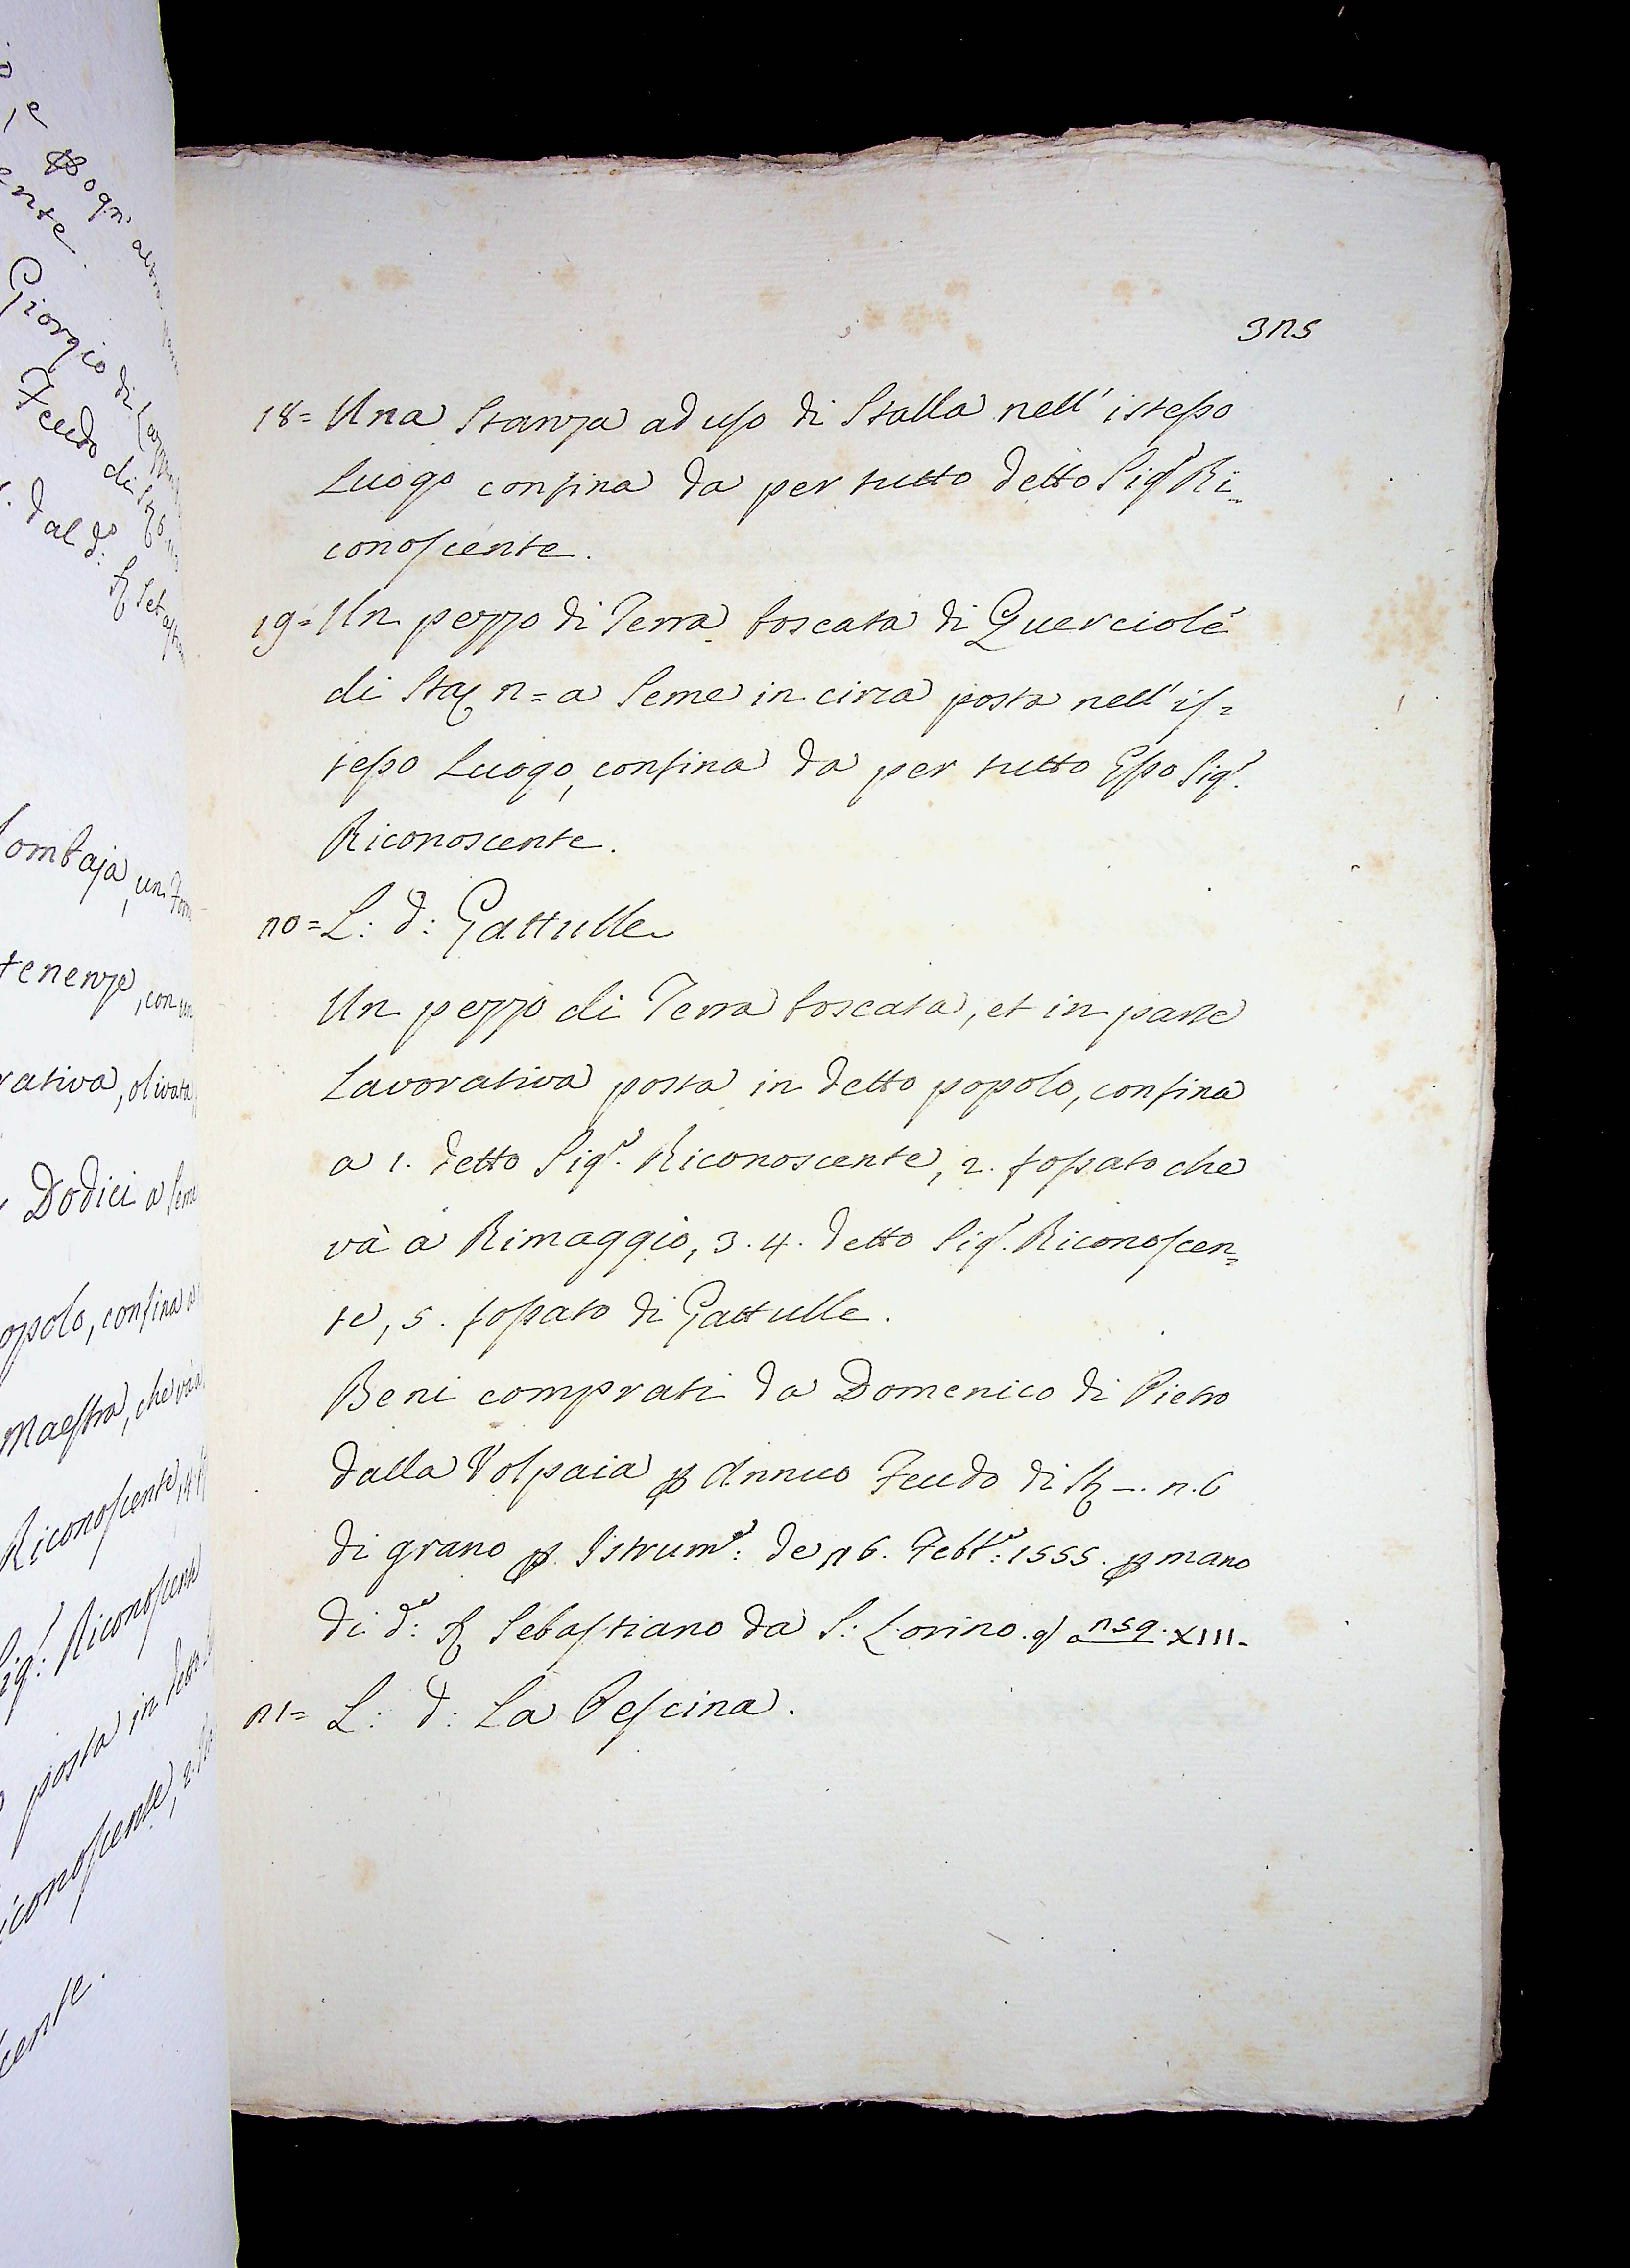 o
, e
ogn'
ente.
Giorgio di
Feudo di
. dal d:o
325
18= Una Stanza ad uso di Stalla nell' istesso
Luogo confina da per tutto detto Sig.r Ri=
conoscente.
19= Un pezzo di Terra boscata di Querciole
di Sta 2= a Seme in circa posta nell' is=
tesso Luogo, confina da per tutto Esso Sig.r
Riconoscente.
20= L: d: Gattulle
Un pezzo di Terra boscata, et in parte
Lavorativa posta in detto popolo, confina
a 1. detto Sig.r Riconoscente, 2. fossato che
và a Rimaggio, 3. 4. detto Sig.r Riconoscen=
te, 5. fossato di Gattulle.
Beni comprati da Domenico di Pietro
dalla Volpaia p Annuo Feudo di St —. 2. 6
di grano p. Istrum:o de 26. Febb:o 1555. p mano
di d:o S Sebastiano da S: Lorino. a 259. XIII.
21= L: d: La Pescina.
lombaja, un
tenenze, con un
rativa, olivata
Dodici a Seme
opolo, confina a
Maestra, che và a
Riconoscente,
Sig.r Riconoscente
posta in detto
iconoscente, 2.
cente.